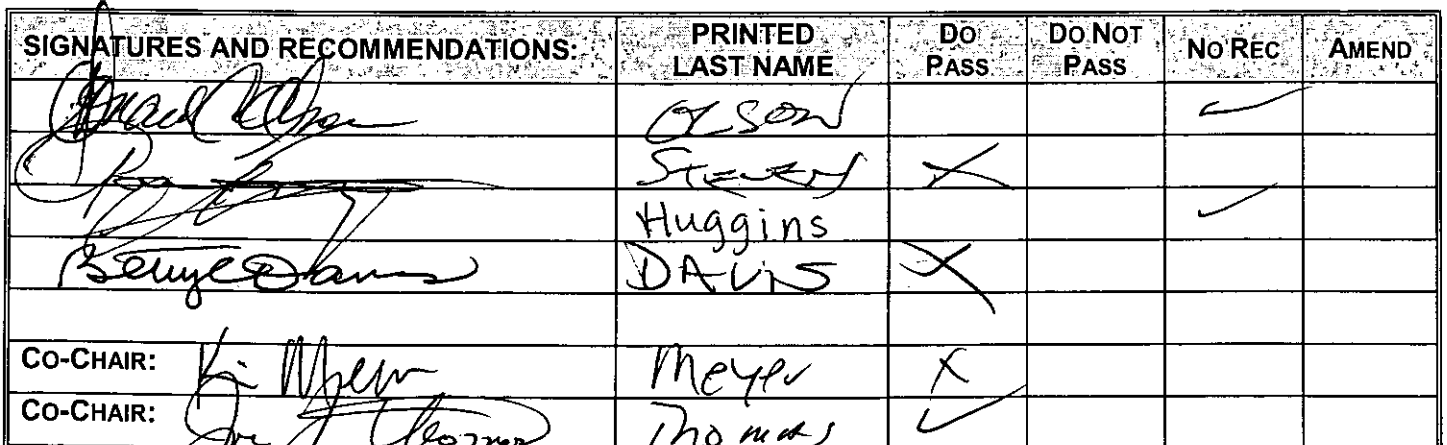 SIGNATURES AND RECOMMENDATIONS: PRINTED LAST NAME DO PASS DO NOT PASS NO REC AMEND
OLSON ✓
STEVEN X
Huggins ✓
DAVIS X
CO-CHAIR: Kevin Meyer Meyer X
CO-CHAIR: Thomas ✓